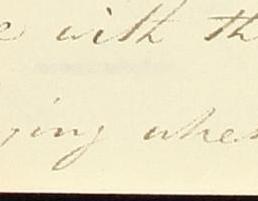 e with th
ying when